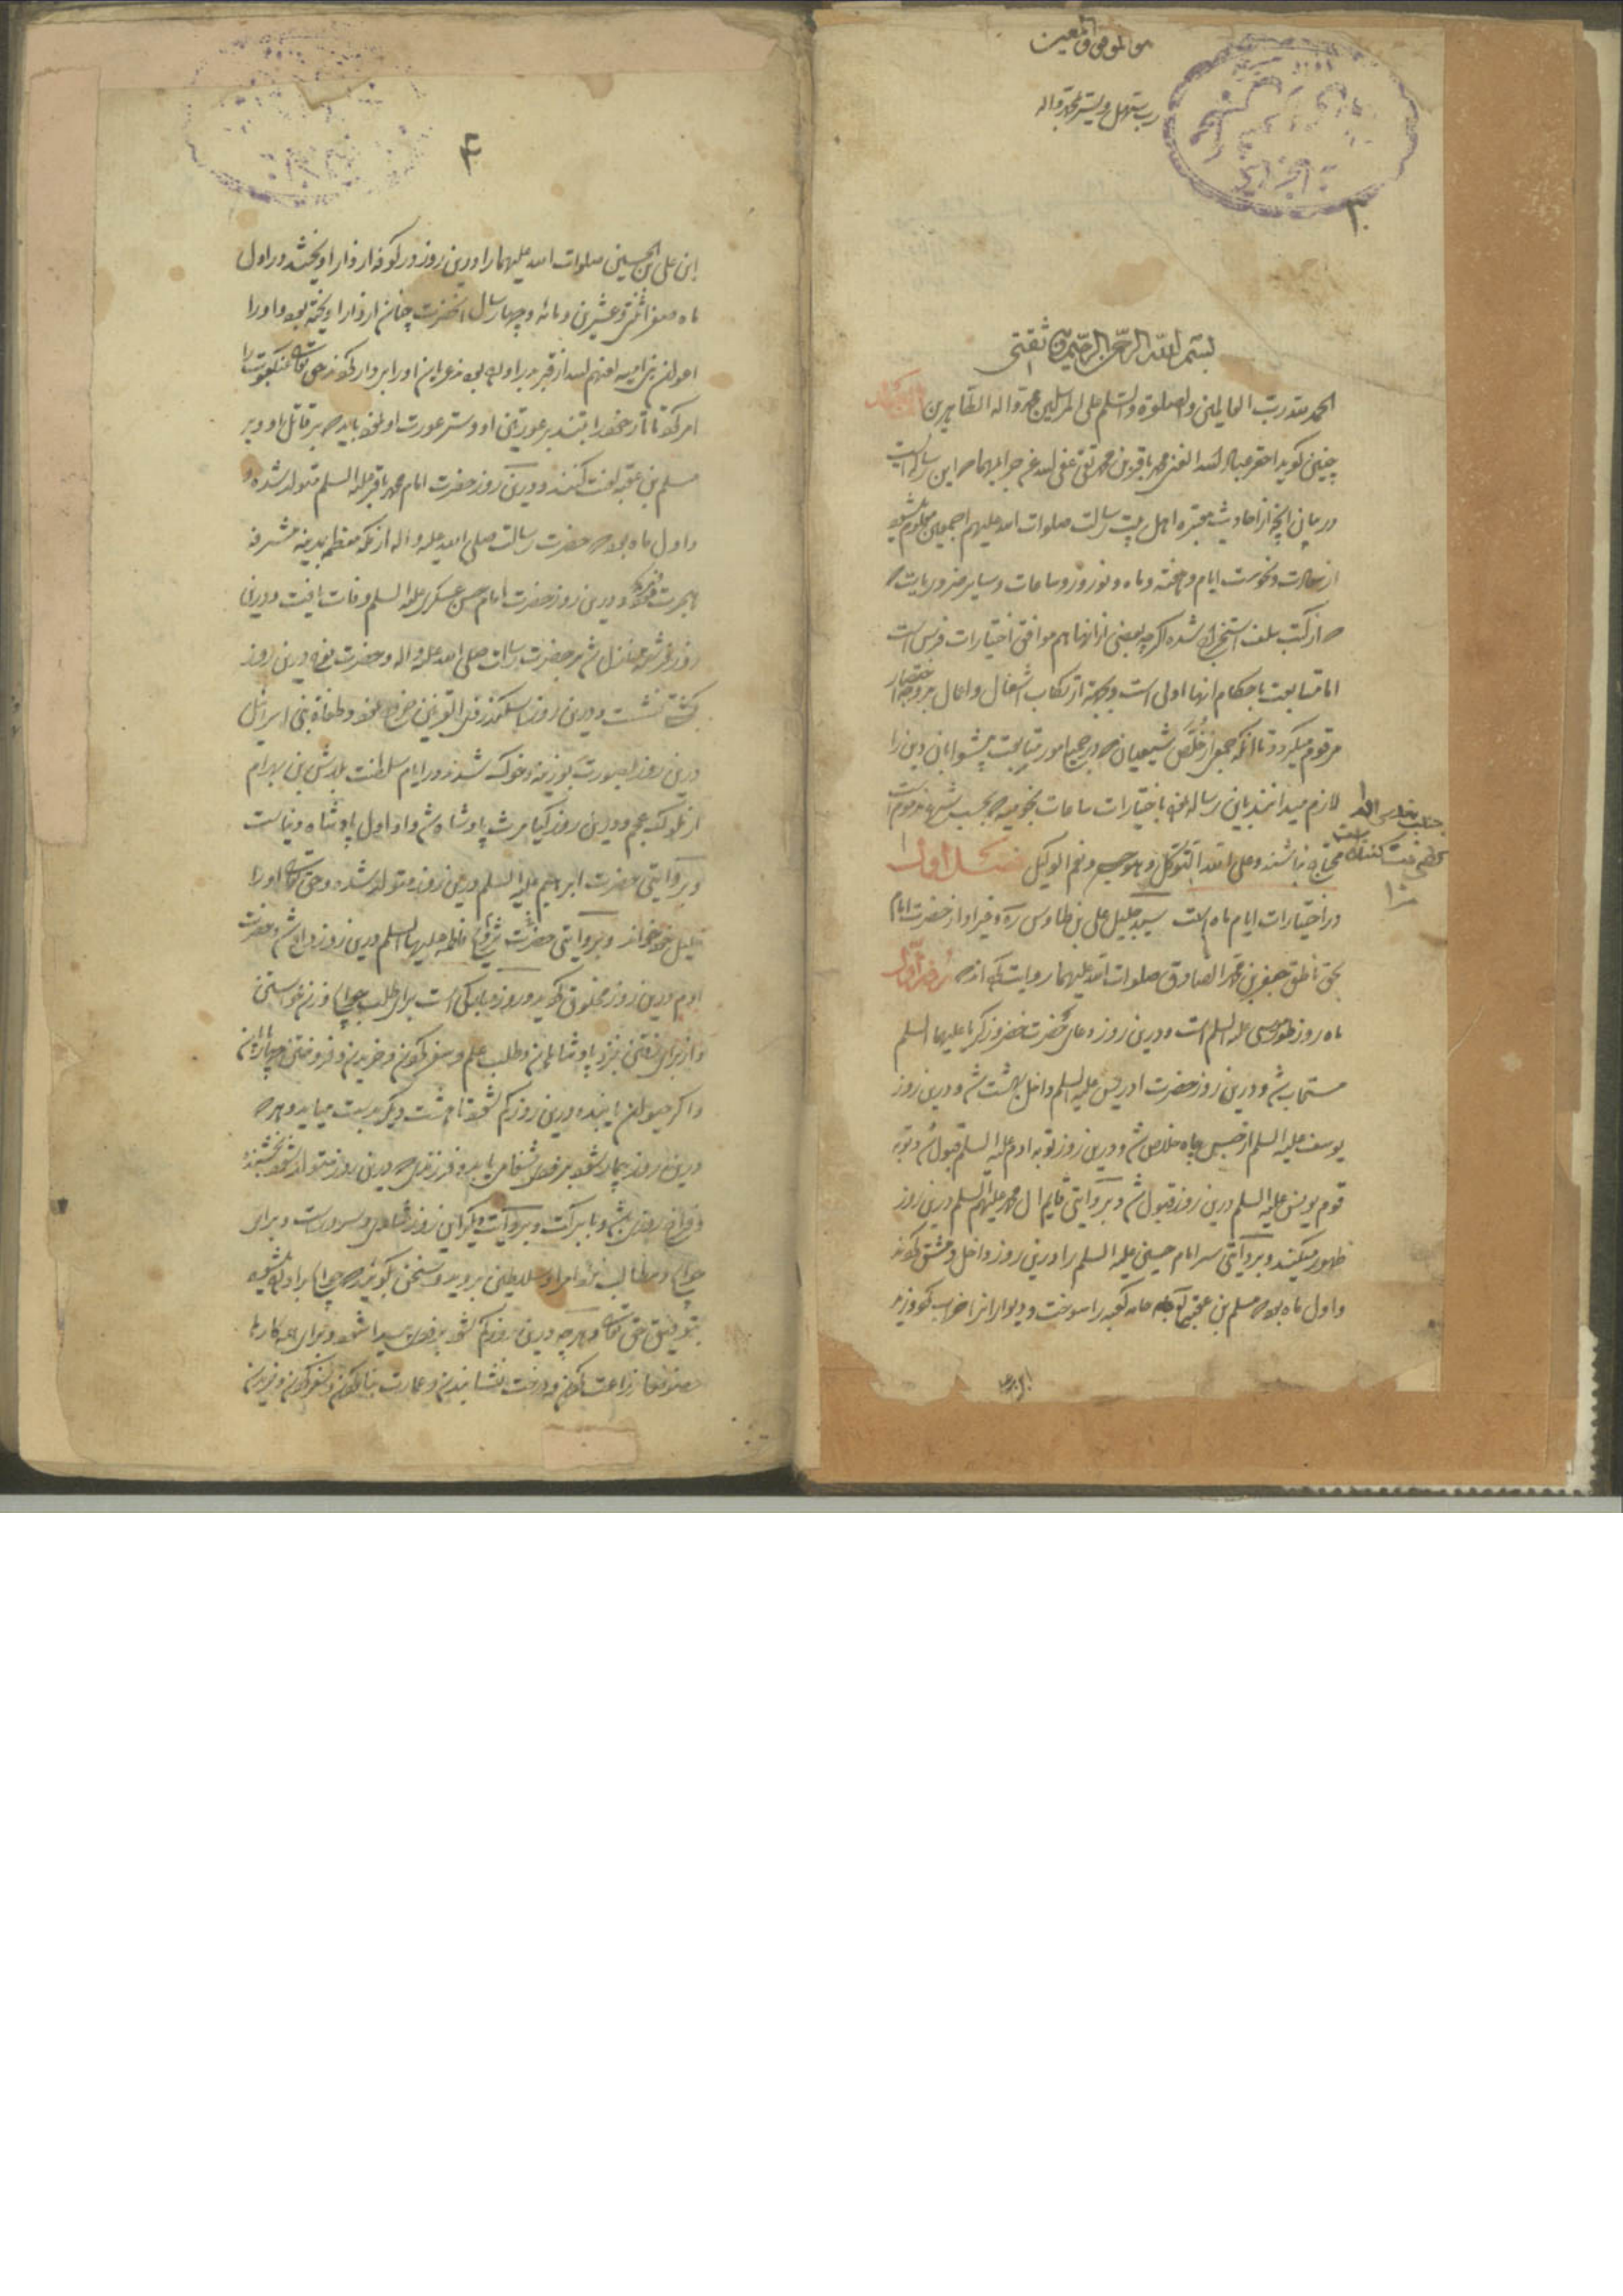 هو الموفق و المعین
رب سهل و یسر بمحمد و اله
۳
بسم الله الرحمن الرحیم و به ثقتی
الحمد لله رب العالمین و الصلوة و السلم علی المرسلین محمد و اله الطاهرین
چنین کوید احقر عباد الله الغنی محمد باقر بن محمد تقی عفی الله عن جرایمهما که این رساله ایست
در بیان انچه از احادیث معتبره اهل بیت رسالت صلوات الله علیهم اجمعین معلوم میشود
از سعادت و نحوست ایام و هفته و ماه و نوروز و ساعات و سایر ضروریات که
که از کتب سلف استخراج شده اکرچه بعضی از انها هم موافق اختیارات فرس است
اما متابعت باحکام انها اولی است و بجهة ارتکاب اشغال و اعمال بر وجه اختصار
مرقوم میکردد تا انکه جمعی از خلّص شیعیان که در جمیع امور متابعت پیشوایان دین را
لازم میدانند باین رساله باختیارات ساعات نجومیه که بحسب شرع مذموم است
محتاج نباشند و علی الله التوکل و هو حسبی و نعم الوکیل فصل اول
در اختیارات ایام ماه است سید جلیل علی بن طاوس ره و غیر او از حضرت امام
بحق ناطق جعفر بن محمد الصادق صلوات الله علیهما روایت کرده اند که روز اول
ماه روز موسی علیه السلم است و درین روز دعای حضرت زکریا علیهما السلم
مستجاب شد و درین روز حضرت ادریس علیه السلم داخل بهشت شد و درین روز
یوسف علیه السلم از حبس چاه خلاص شد و درین روز توبه ادم علیه السلم قبول شد و توبه
قوم یونس علیه السلم درین روز قبول شد و بروایتی قایم ال محمد علیهم السلم درین روز
ظهور میکند و بروایتی سر امام حسین علیه السلم را درین روز داخل دمشق کردند
و اول ماه بود که مسلم بن عقبه جامه کعبه را سوخت و دیوار انرا خراب کرد و زید
۴
ابن علی بن الحسین صلوات الله علیهما را درین روز در کوفه از دار اویختند در اول
ماه صفر و عشرین و مائه و چهار سال انحضرت چنان از دار اویخته بود و او را
اعوان بنی امیه لعنهم الله از قبر براورده بودند عریان او را بر دار کردند حق تعالی عنکبوت را
امر کرد تا تار خود را تنند بر عورتین او و ستر عورت او نمود باید که بر قاتل او و بر
مسلم بن عقبه لعنت کنند و درین روز حضرت امام محمد باقر علیه السلم متولد شده
و اول ماه بود که حضرت رسالت صلی الله علیه و اله از مکه معظمه بمدینه مشرفه
هجرت فرمود و درین روز حضرت امام حسن عسکری علیه السلم وفات یافت و درین
روز نازل شد بر حضرت رسالت صلی الله علیه و اله و حضرت نوح درین روز
بکشتی نشست و درین روز اسکندر ذی القرنین خروج نمود و طغاة بنی اسرائیل
درین روز بصورت بوزینه و خوک شدند و در ایام سلطنت بلاش بن بهرام
از ملوک عجم و درین روز کیامرث پادشاه شد و او اول پادشاه دنیا است
و بروایتی حضرت ابراهیم علیه السلم درین روز متولد شد و حق تعالی او را
خلیل خود خواند و بروایتی حضرت فاطمه علیها السلم درین روز و حضرت
ادم درین روز مخلوق کردید و روز مبارکی است برای طلب حوایج و زن خواستن
و از برای رفتن بنزد پادشاهان و طلب علم و سفر کردن و خریدن و فروختن و چهارپایان
و اکر حیوان یا بنده درین روز کم شود تا هشت دیکر بدست میاید و هر که
درین روز بیمار شود بزودی شفا می یابد و فرزندی که درین روز متولد شود بخشنده
و فراخ روزی باشد و با برکت و بروایت دیکر این روز شادی و سرور است و برای
حوایج و مطالب نزد امرا و سلاطین بروید و سخن کوئید که حوایج براورده میشود
بتوفیق حق تعالی و هرچه درین روز کم شود بزودی پیدا شود و برای همه کارها
خصوصا زراعت کردن و درخت نشانیدن و عمارت بنا کردن و سفر کردن و خریدن